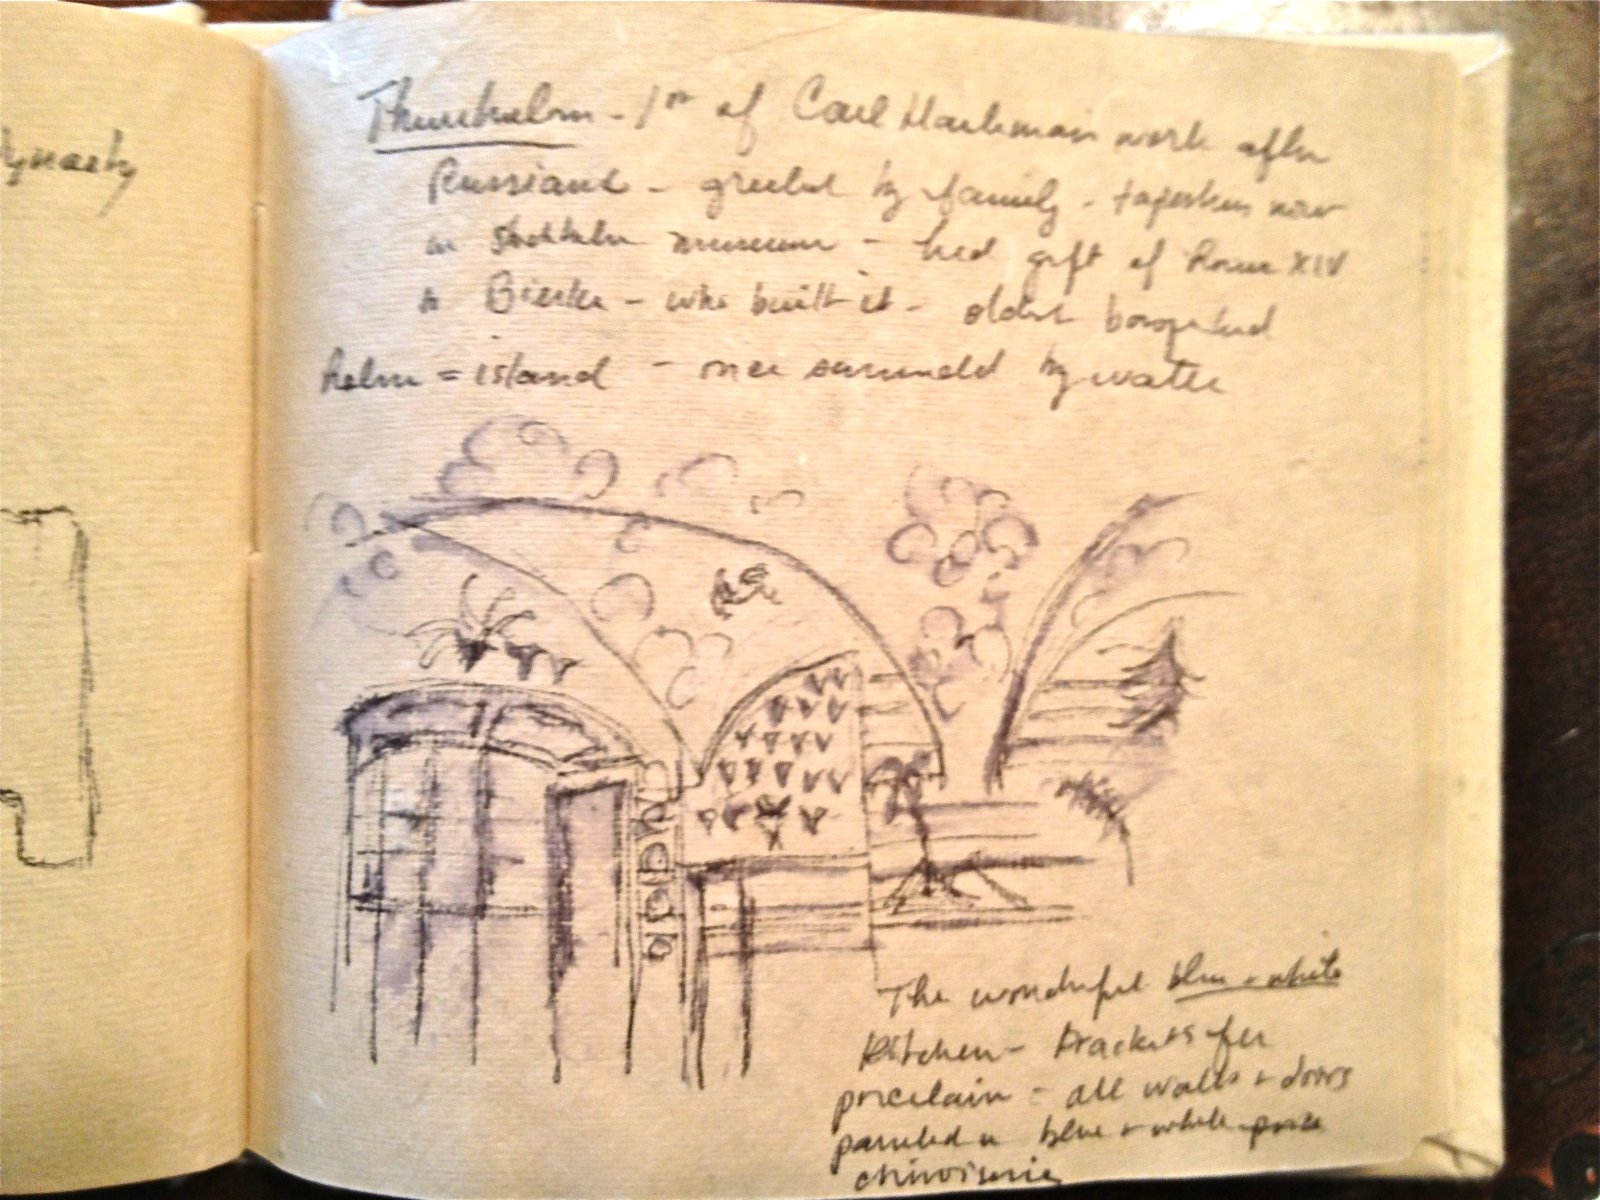 dynasty
Thureholm - 1st of Carl Harleman work after
Russians - greeted by family - tapestries now
in museum - bed gift of XIV
to Bielke - who built it - oldest
holm = island - once surrounded by water
The wonderful blue + white
kitchen - brackets for
porcelain - all walls + doors
painted in blue + white
chinoiserie